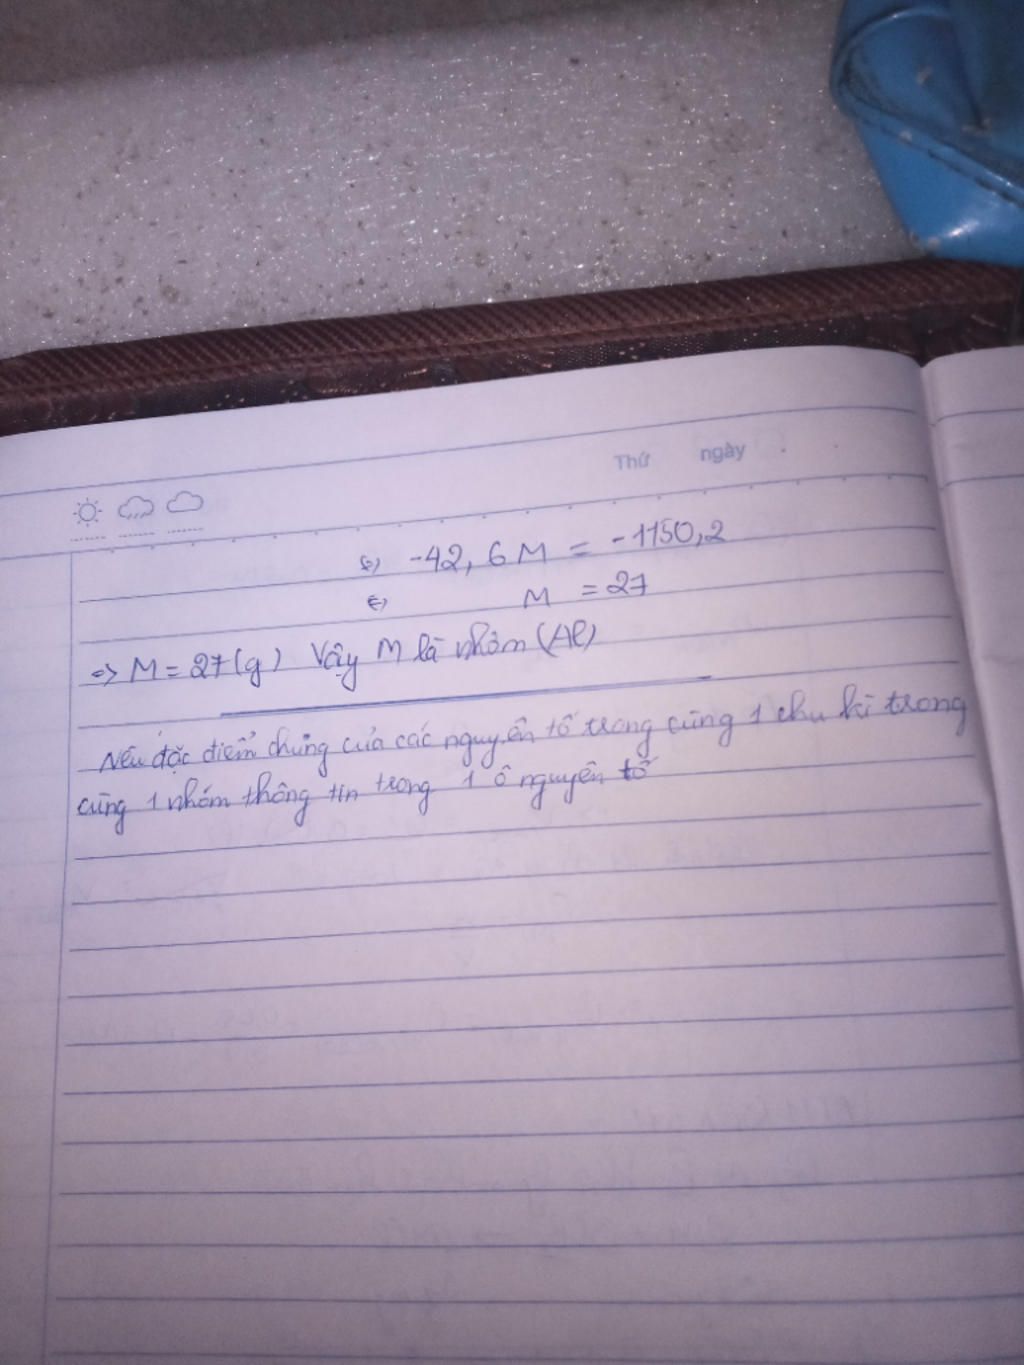 Thứ ngày
⇔ -42,6M = -1150,2
⇔ M = 27
=> M = 27(g) Vậy M là nhôm (Al)
Nêu đặc điểm chung của các nguyên tố trong cùng 1 chu kì trong
cùng 1 nhóm thông tin trong 1 ô nguyên tố